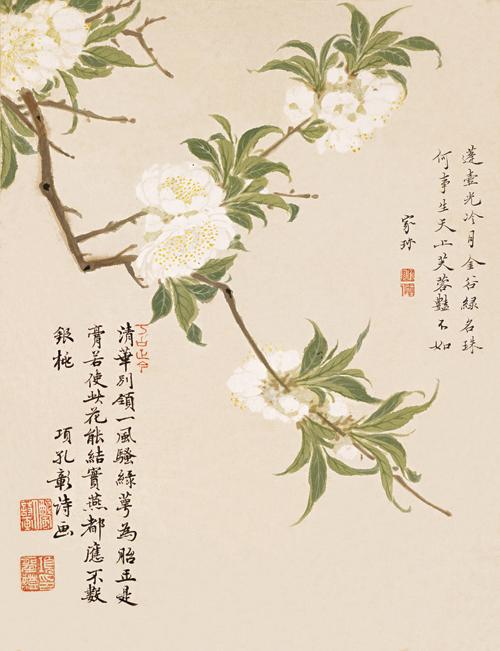 蓬壺光冷月金谷綠名珠
何事生天上芙蓉豔不如
家珍
清華別領一風騷綠萼為胎玉是
膏若使此花能結實燕都應不數
銀桃 項孔彰詩画